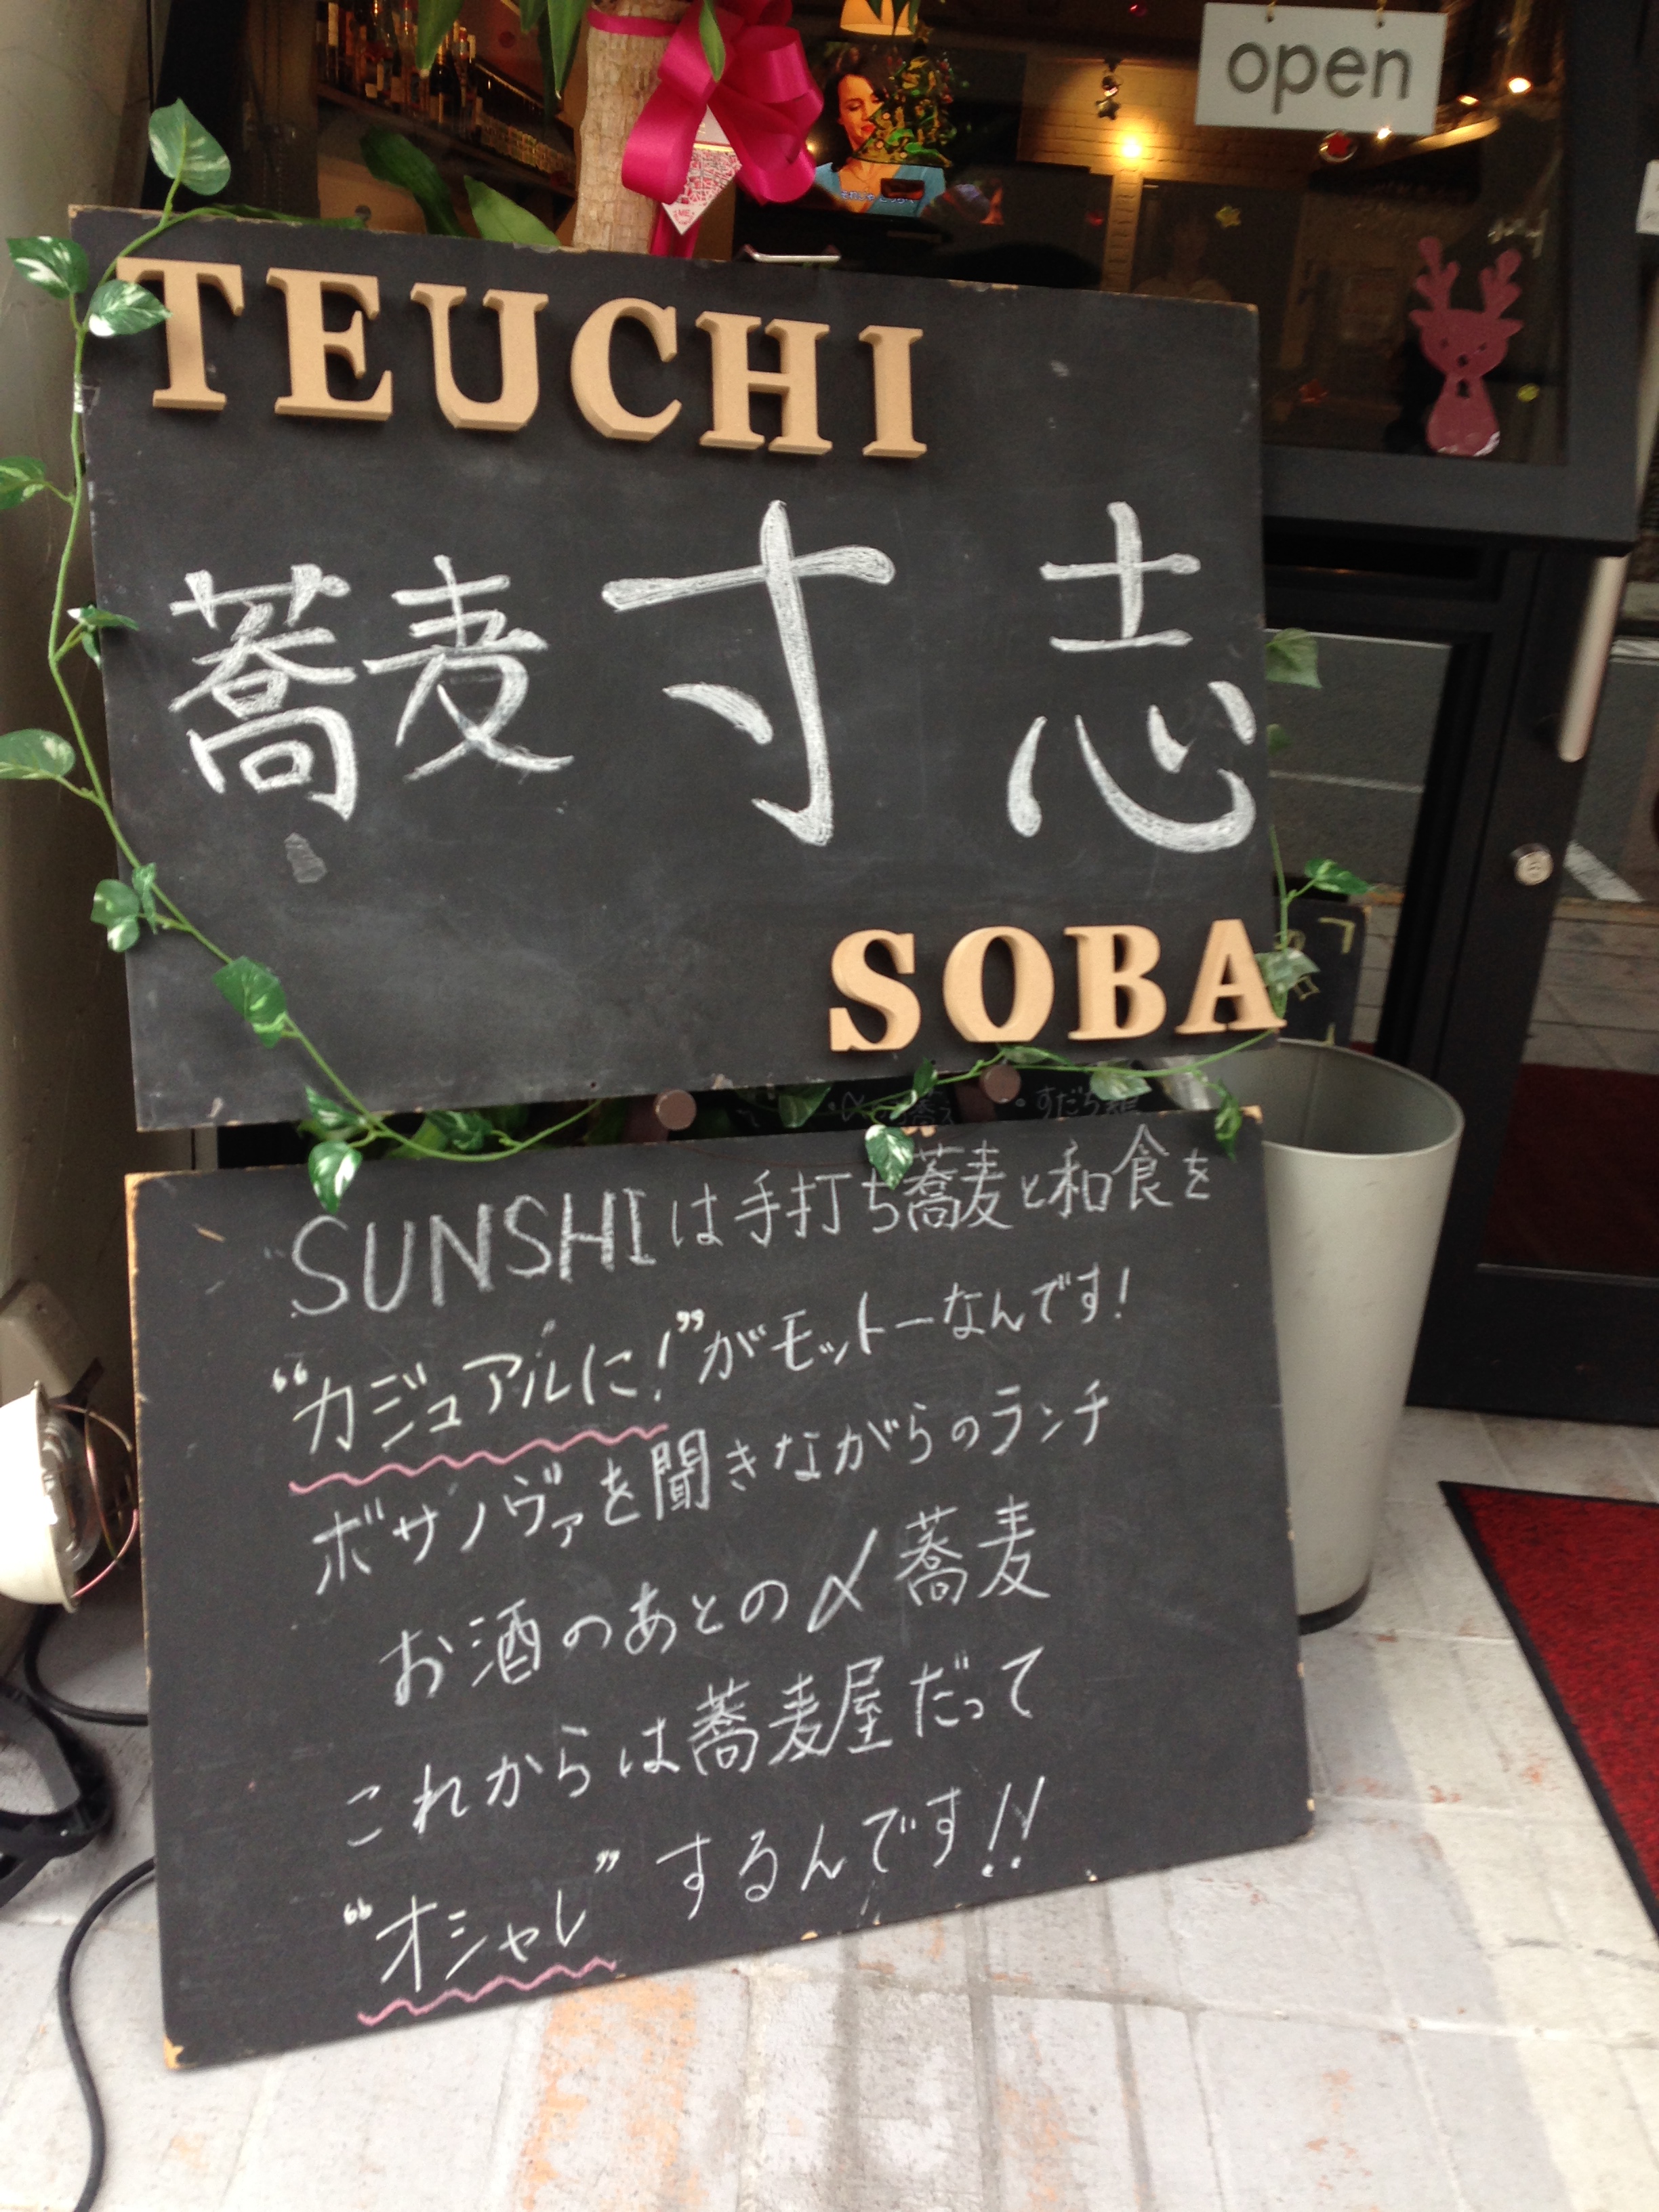 open
TEUCHI
蕎麦 寸 志
SOBA
SUNSHIは手打ち蕎麦と和食を
“カジュアルに!”がモットーなんです!
ボサノヴァを聞きながらのランチ
お酒のあとの〆蕎麦
これからは蕎麦屋だって
“オシャレ”するんです!!